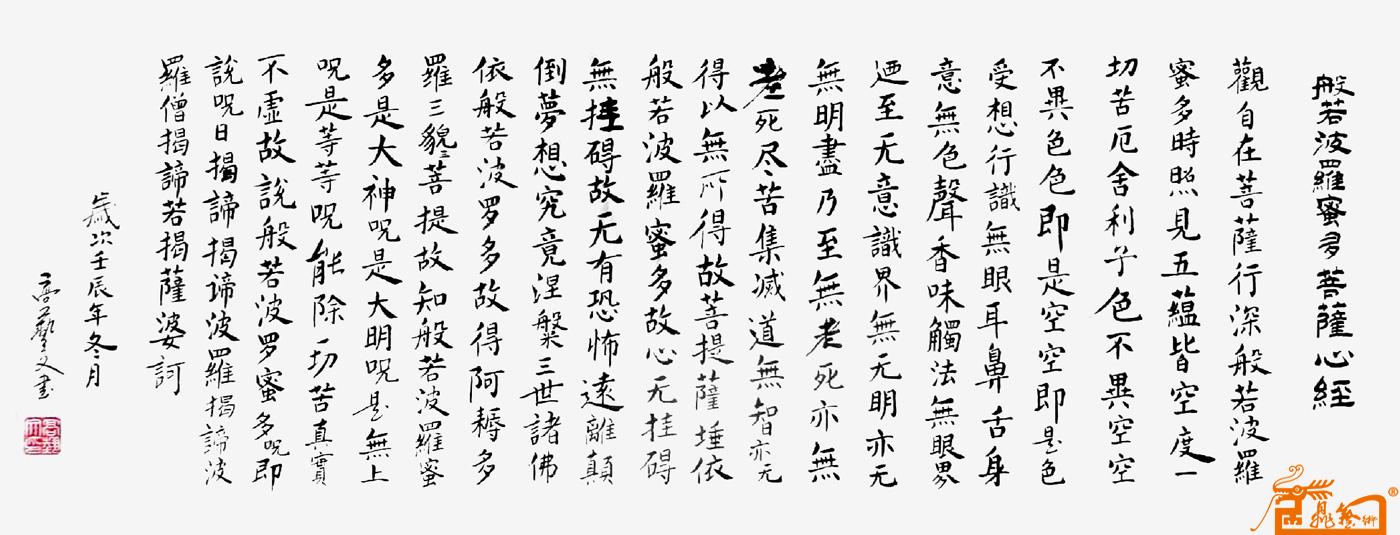 般若波羅蜜多菩薩心經
觀自在菩薩行深般若波羅
蜜多時照見五蘊皆空度一
切苦厄舍利子色不異空空
不異色色即是空空即是色
受想行識無眼耳鼻舌身
意無色聲香味觸法無眼界
迺至无意識界無无明亦无
無明盡乃至無老死亦無
老死尽苦集滅道無智亦无
得以無所得故菩提薩埵依
般若波羅蜜多故心无挂碍
無挂碍故无有恐怖遠離顛
倒夢想究竟涅槃三世諸佛
依般若波罗多故得阿耨多
羅三貌三菩提故知般若波羅蜜
多是大神呪是大明呪是無上
呪是等等呪能除一切苦真實
不虛故說般若波罗蜜多呪即
說呪曰揭諦揭谛波羅揭諦波
羅僧揭諦若揭薩婆訶
歲次壬辰年冬月
高藝文書